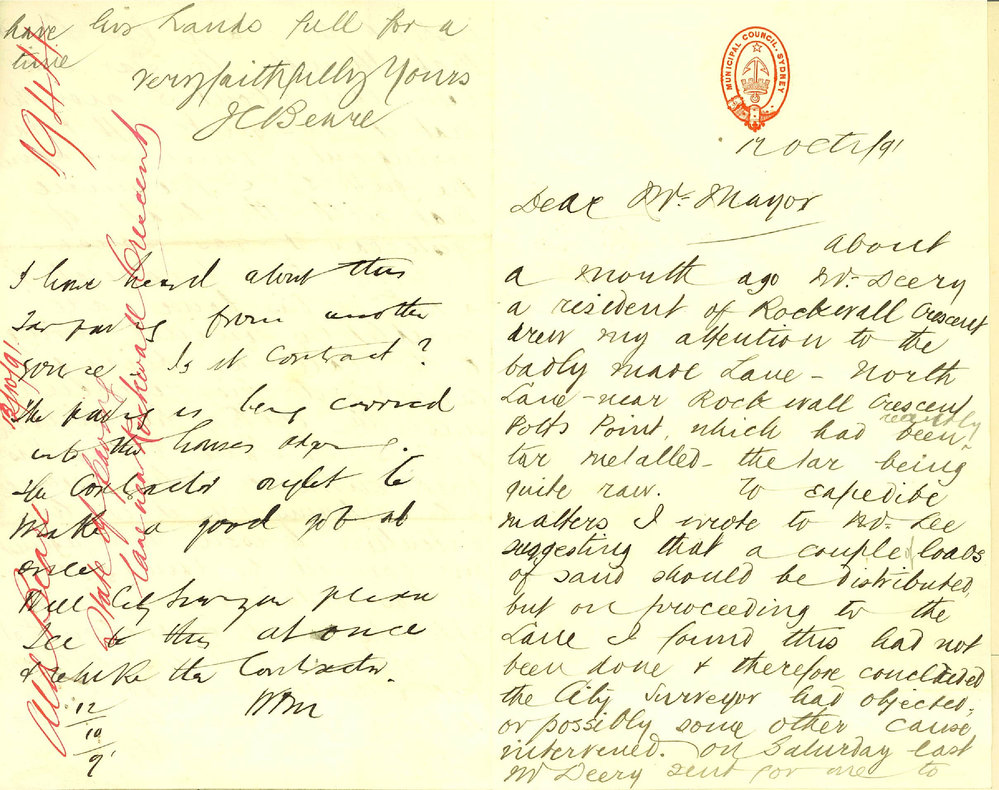 have his hands full for a
time
very faithfully Yours
J C Beare
1944
12/10/91
Ald Beare
State of paving
lane near Rockwall Crescent
I have heard about this
Tar paving from another
source. Is it Contract?
The paving is being carried
into the houses
The Contractor ought to
make a good job at
once
Will City Surveyor please
See to this at once
& rebuke the Contractor.
WM
12
10
91
MUNICIPAL COUNCIL, SYDNEY
12 Oct/91
Dear Mr. Mayor
About
a month ago Mr. Deery
a resident of Rockwall Crescent
drew my attention to the
badly made Lane - North
Lane - near Rockwall Crescent
Potts Point, which had been recently
tar metalled - the tar being
quite raw. To expedite
matters I wrote to Mr. Lee
suggesting that a couple of loads
of sand should be distributed,
but on proceeding to the
Lane I found this had not
been done & therefore concluded
the City Surveyor had objected,
or possibly some other cause
intervened. On Saturday last
Mr Deery sent for me to